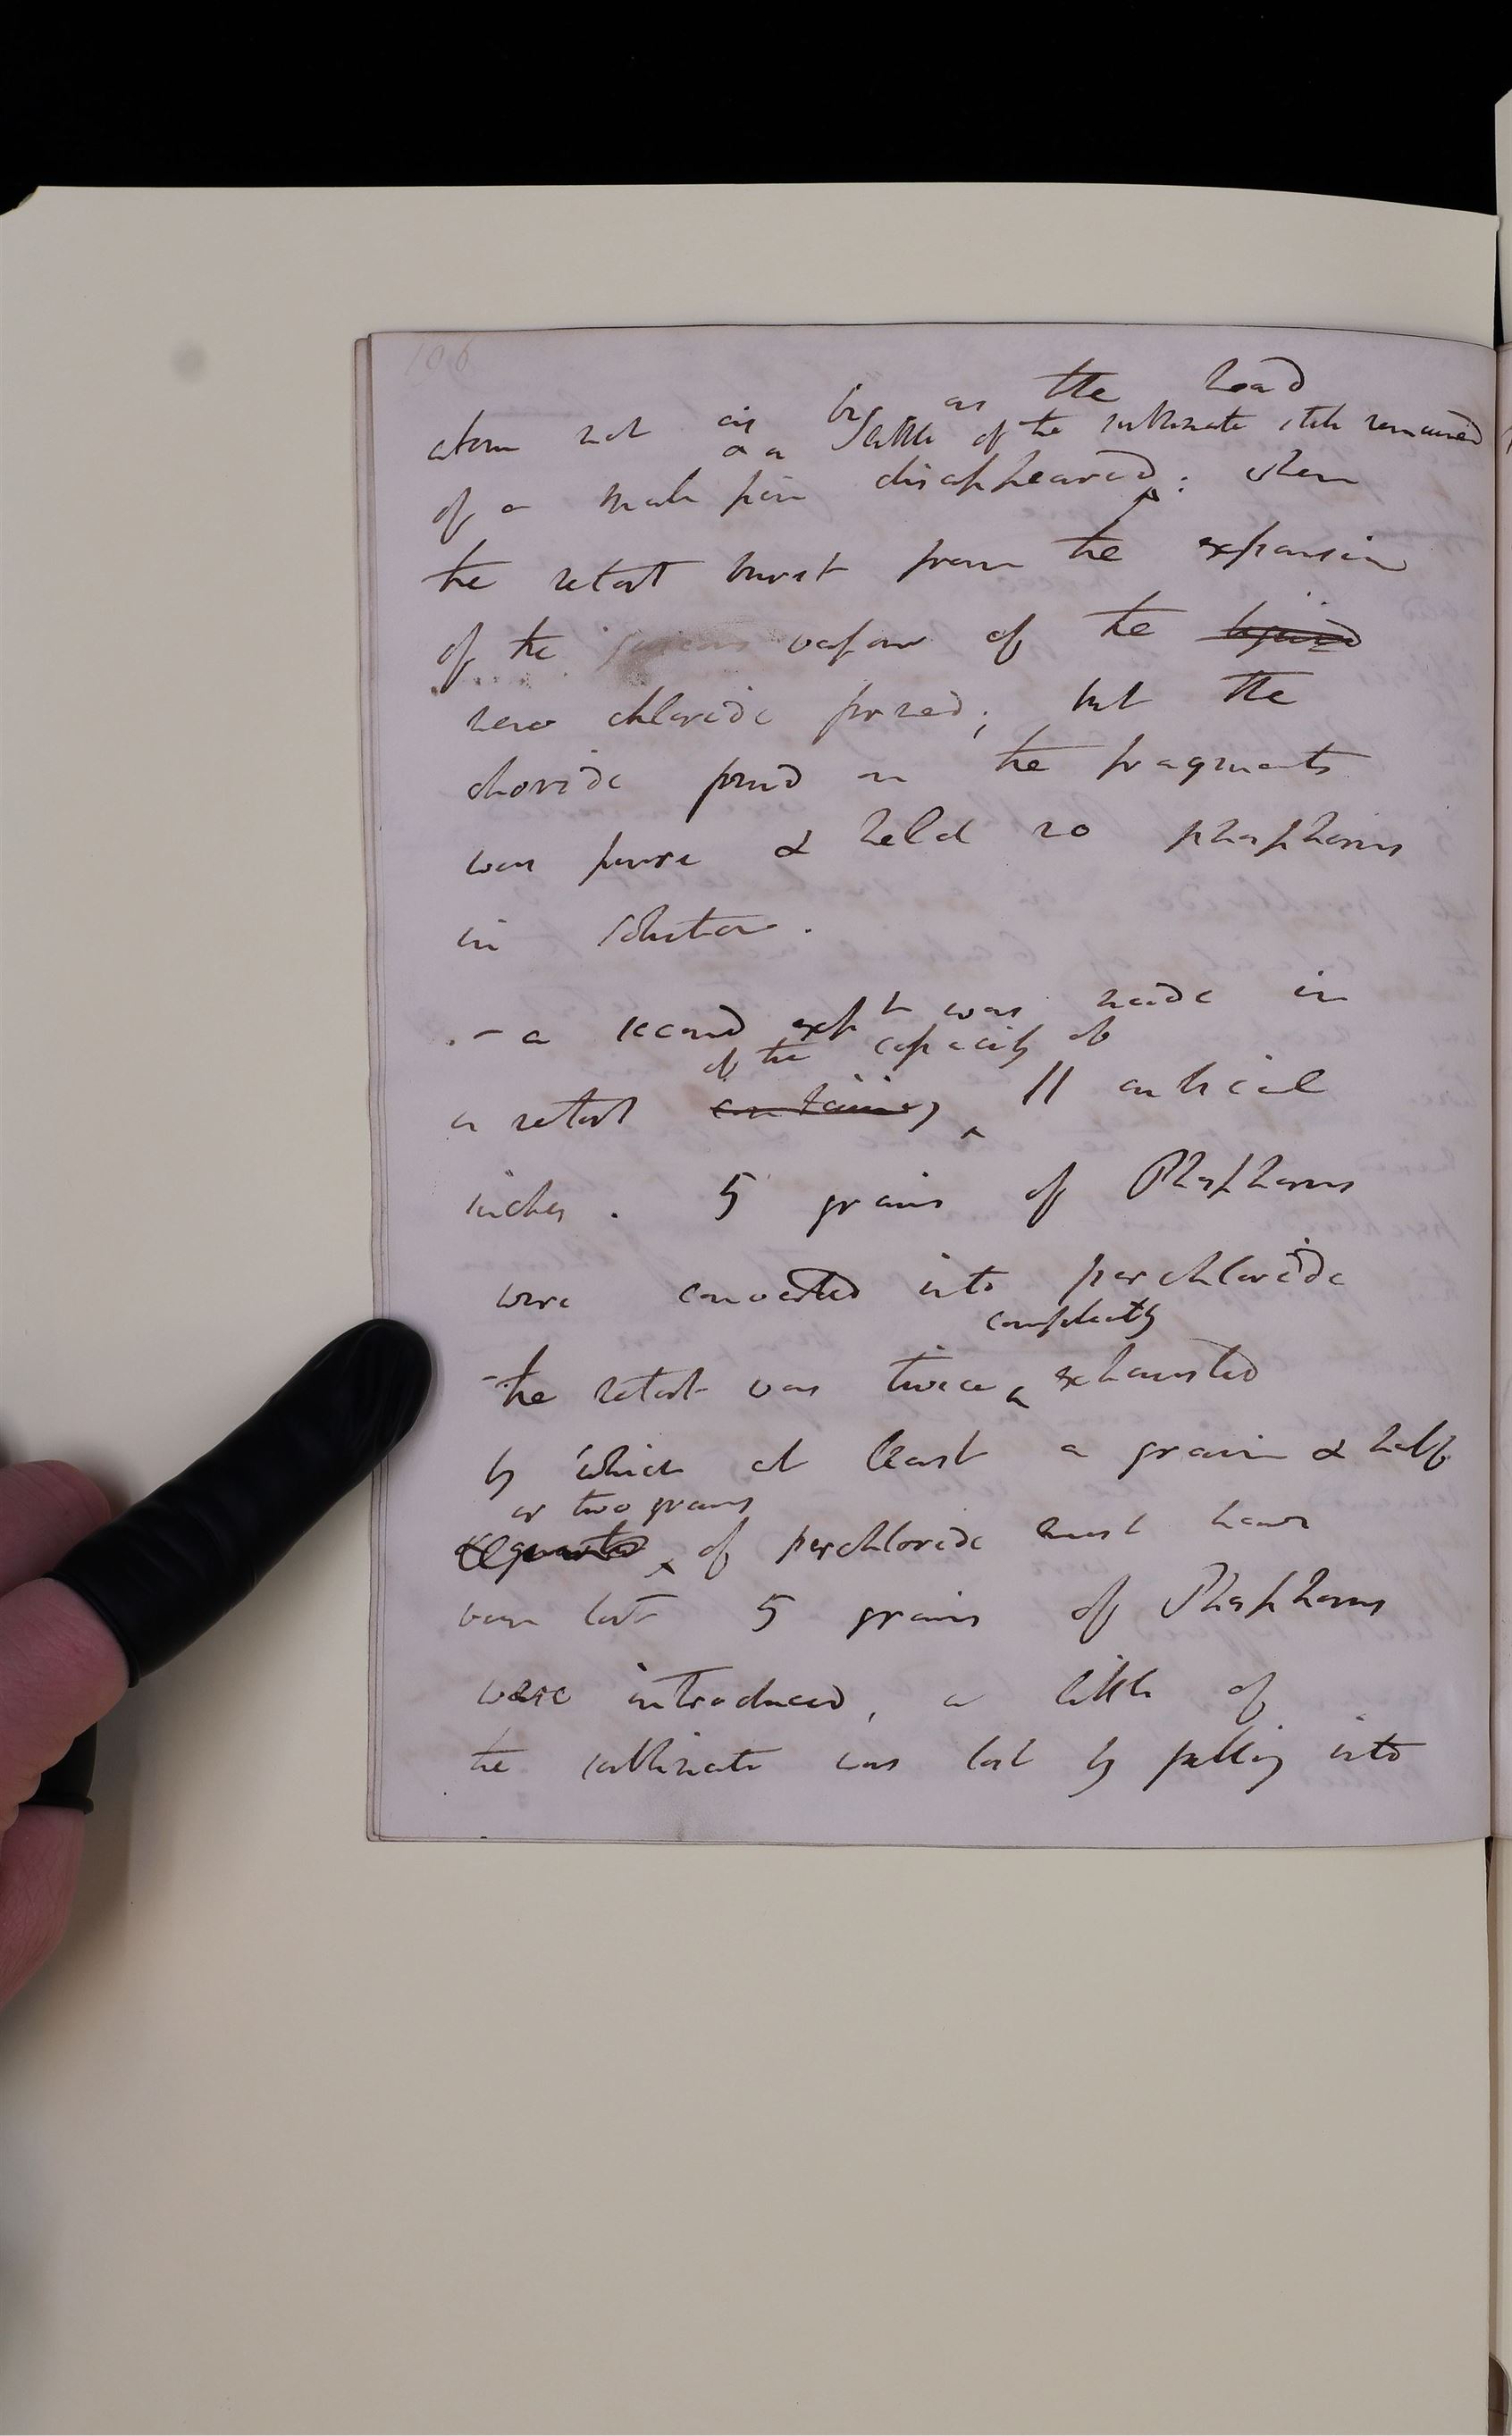 106
atom not as big as the head
& a little of the sublimate still remained
of a small pin disappeared: when
the retort burst from the expansion
of the vapour of the liquid
new chloride formed; but the
choride found in the fragments
was pure & held no phosphorus
in solution.
- a second expt was made in
of the capacity of
a retort containing 11 cubical
inches. 5 grains of Phosphorus
were converted into perchloride
compleatly
- the retort was twice exhausted
by which at least a grain & half
or two grains
of perchloride must have
been lost 5 grains of Phosphorus
were introduced, a little of
the sublimate was lost by putting into